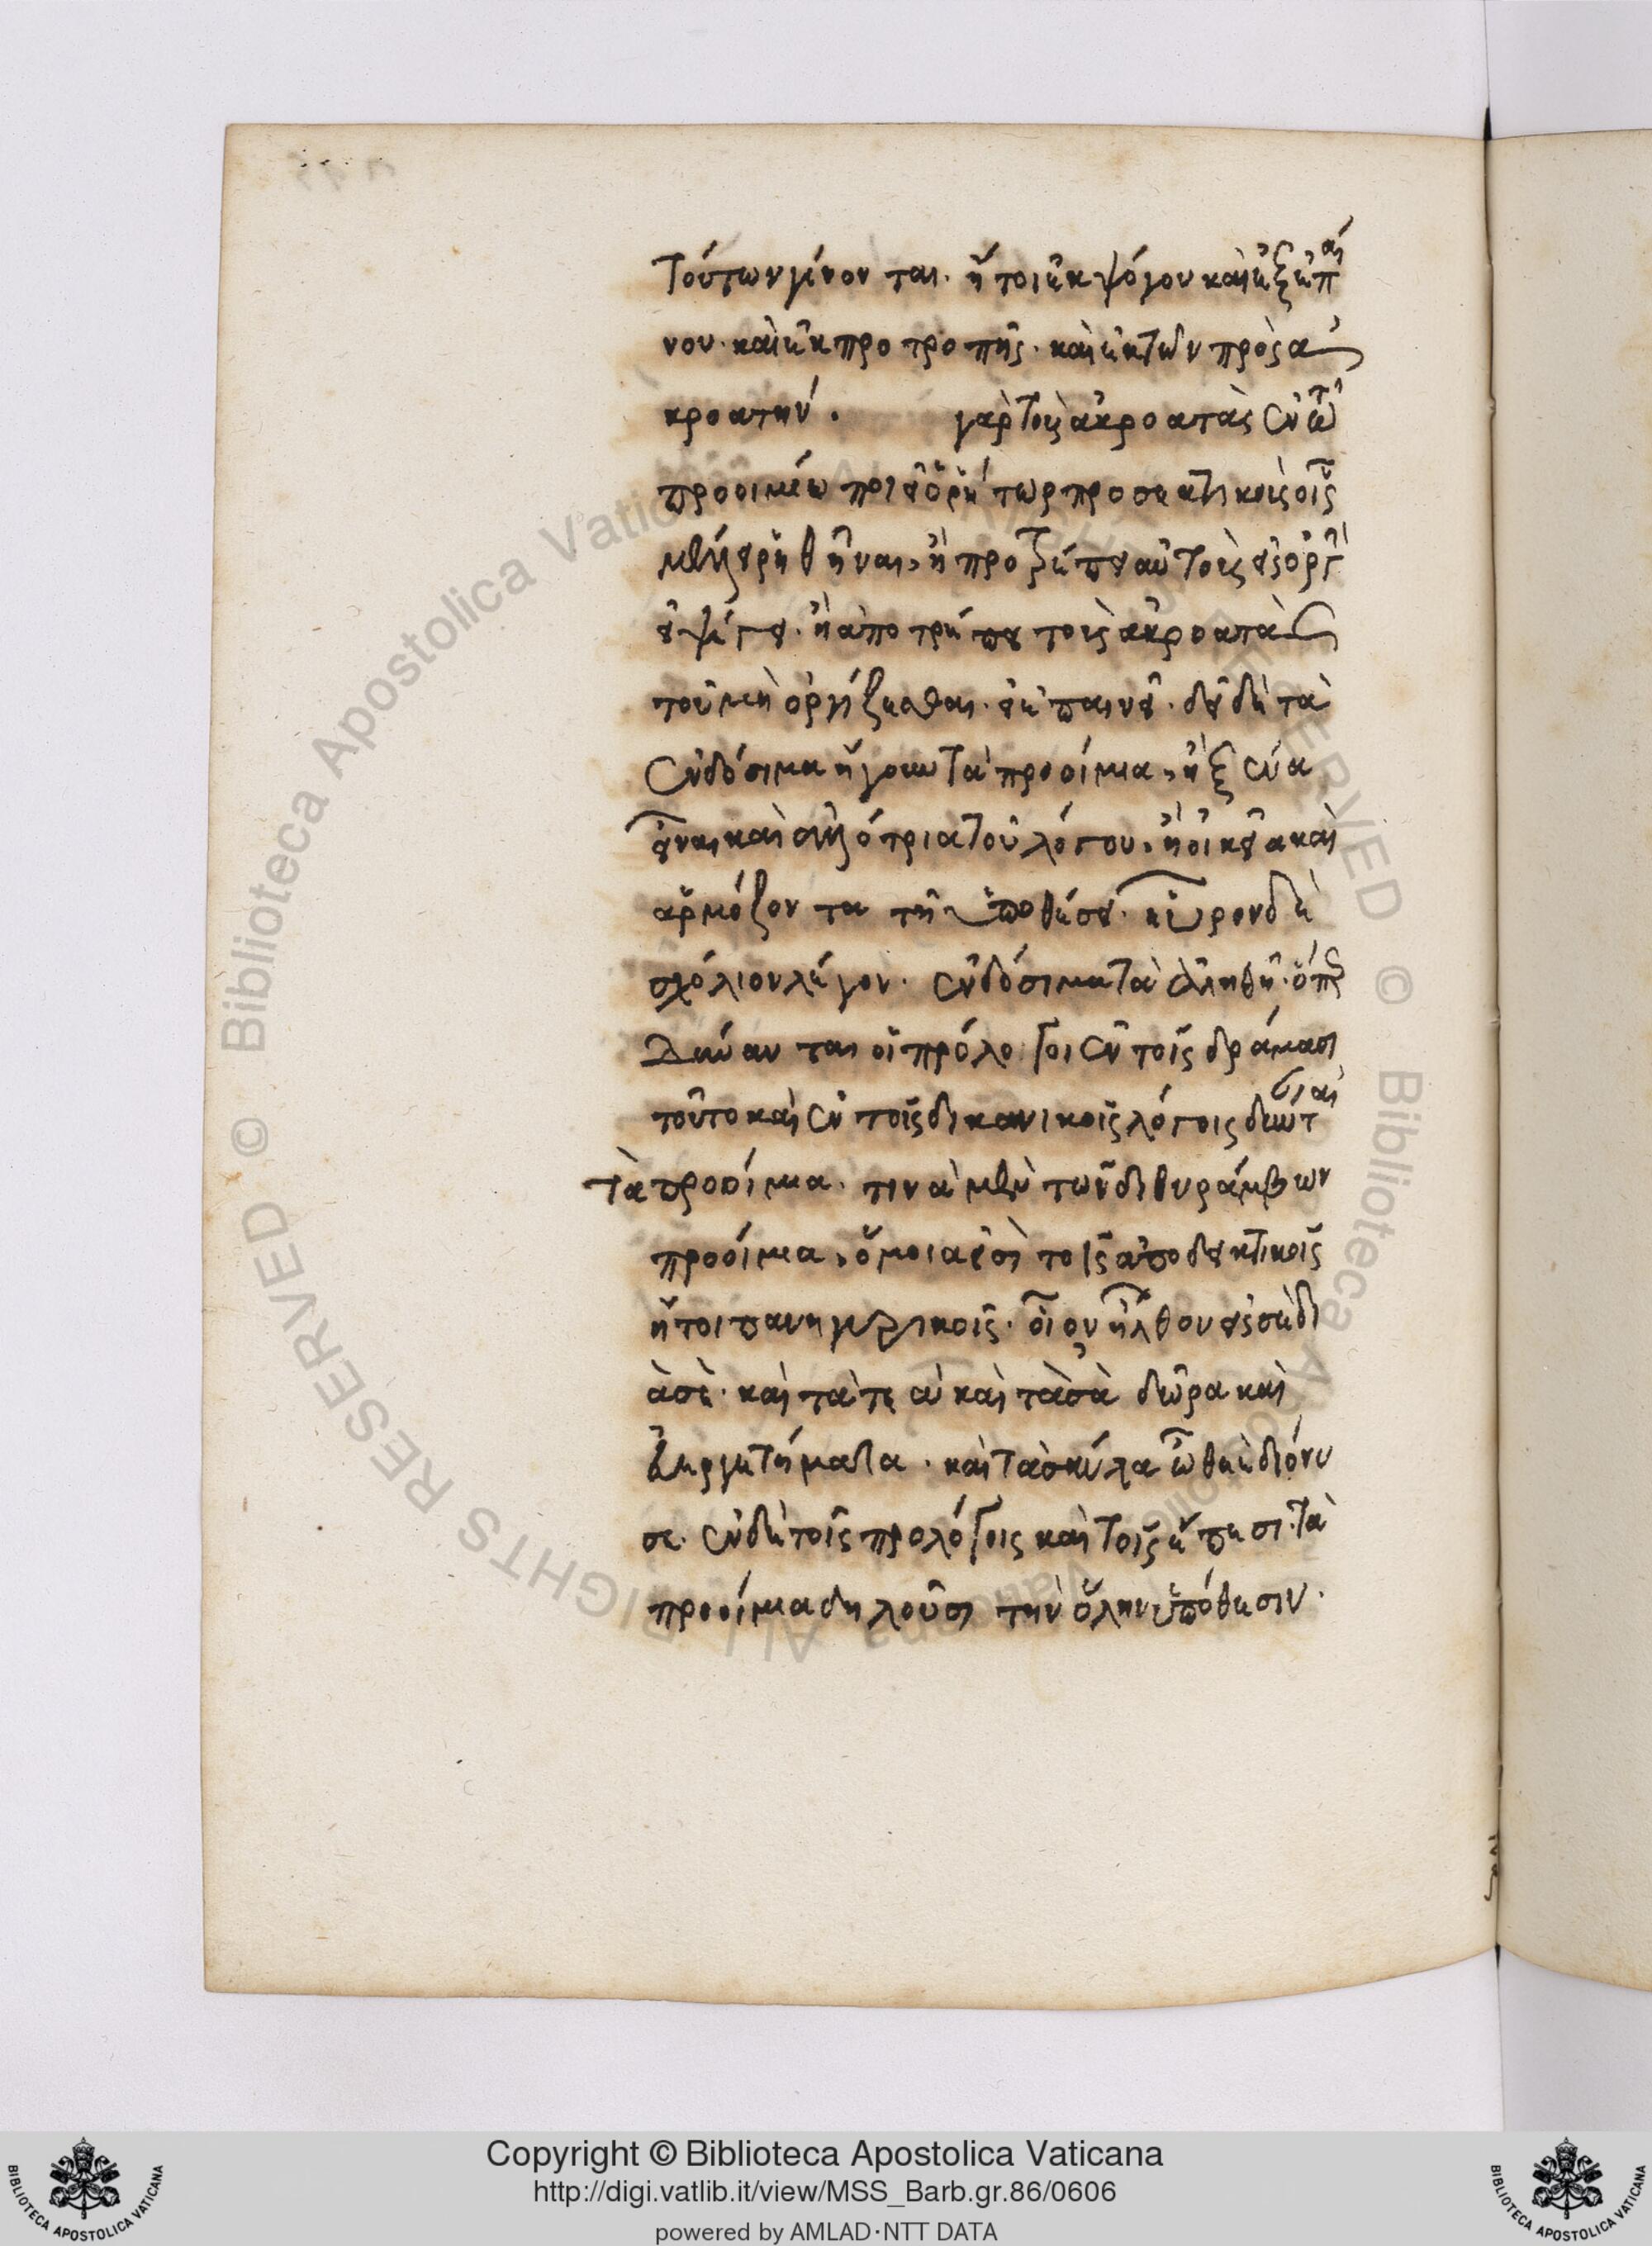 τούτων γίνονται. ἤτοι ἐκ ψόγου καὶ ἐξ ἐπαί
νου. καὶ ἐκ προτροπῆς. καὶ ἐκ τῶν πρὸς ἀ
κροατήν. γὰρ τοὺς ἀκροατὰς ἐν τῶ
προοιμίω ποιεῖ ὁ ῥήτωρ προσεκτικοὺς οἷς
μέλλει ῥηθῆναι, ἢ προτρέπει αὐτοὺς εἰς ὀργὴν
εἰ ψέγει. ἢ ἀποτρέπει τοὺς ἀκροατὰς
τοῦ μὴ ὀργίζεσθαι. εἰ ἐπαινεῖ. δεῖ δὲ τὰ
ἐνδόσιμα ἤγουν τὰ προοίμια, ἢ ξένα
εἶναι καὶ ἀλλότρια τοῦ λόγου. ἢ οἰκεῖα καὶ
ἁρμόζοντα τῆ ὑποθέσει. εὗρον δὲ
σχόλιον λέγον. ἐνδόσιμα τὰ ἀληθῆ. ὅπερ
δύνανται οἱ πρόλογοι ἐν τοῖς δράμασι
τοῦτο καὶ ἐν τοῖς δικανικοῖς λόγοις δύνανται
τὰ προοίμια. τινὰ μὲν τῶν διθυράμβων
προοίμια, ὅμοιά εἰσι τοῖς ἀποδεικτικοῖς
ἤτοι πανηγυρικοῖς. οἷον ἦλθον εἰς σὲ δι
ὰ σὲ. καὶ τὰ τε ὰ καὶ τὰ σὰ δῶρα καὶ
εὐεργετήματα. καὶ τὰ σκύλα ὦ θεὲ διόνυ
σε. ἐν δὲ τοῖς προλόγοις καὶ τοῖς ἔπεσι. τὰ
προοίμια δηλοῦσι τὴν ὅλην ὑπόθεσιν.
Copyright © Biblioteca Apostolica Vaticana
http://digi.vatlib.it/view/MSS_Barb.gr.86/0606
powered by AMLAD·NTT DATA